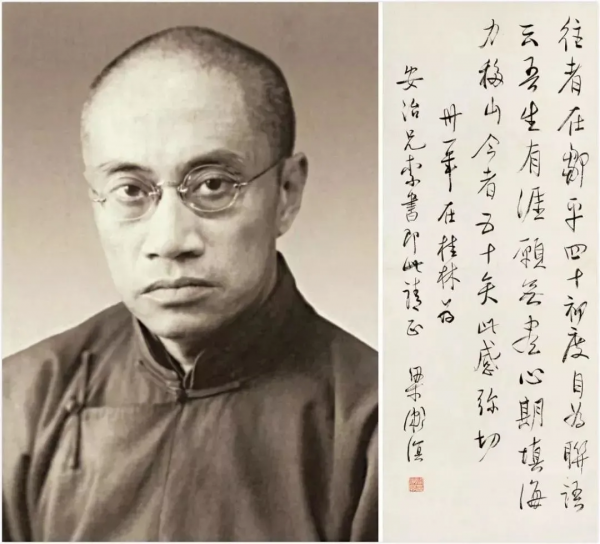 往者在鄒平四十初度自为聯語
云吾生有涯願无尽心期填海
力移山今者五十矣此感弥切
卅一年在桂林为
安治兄索書即此請正 梁漱溟